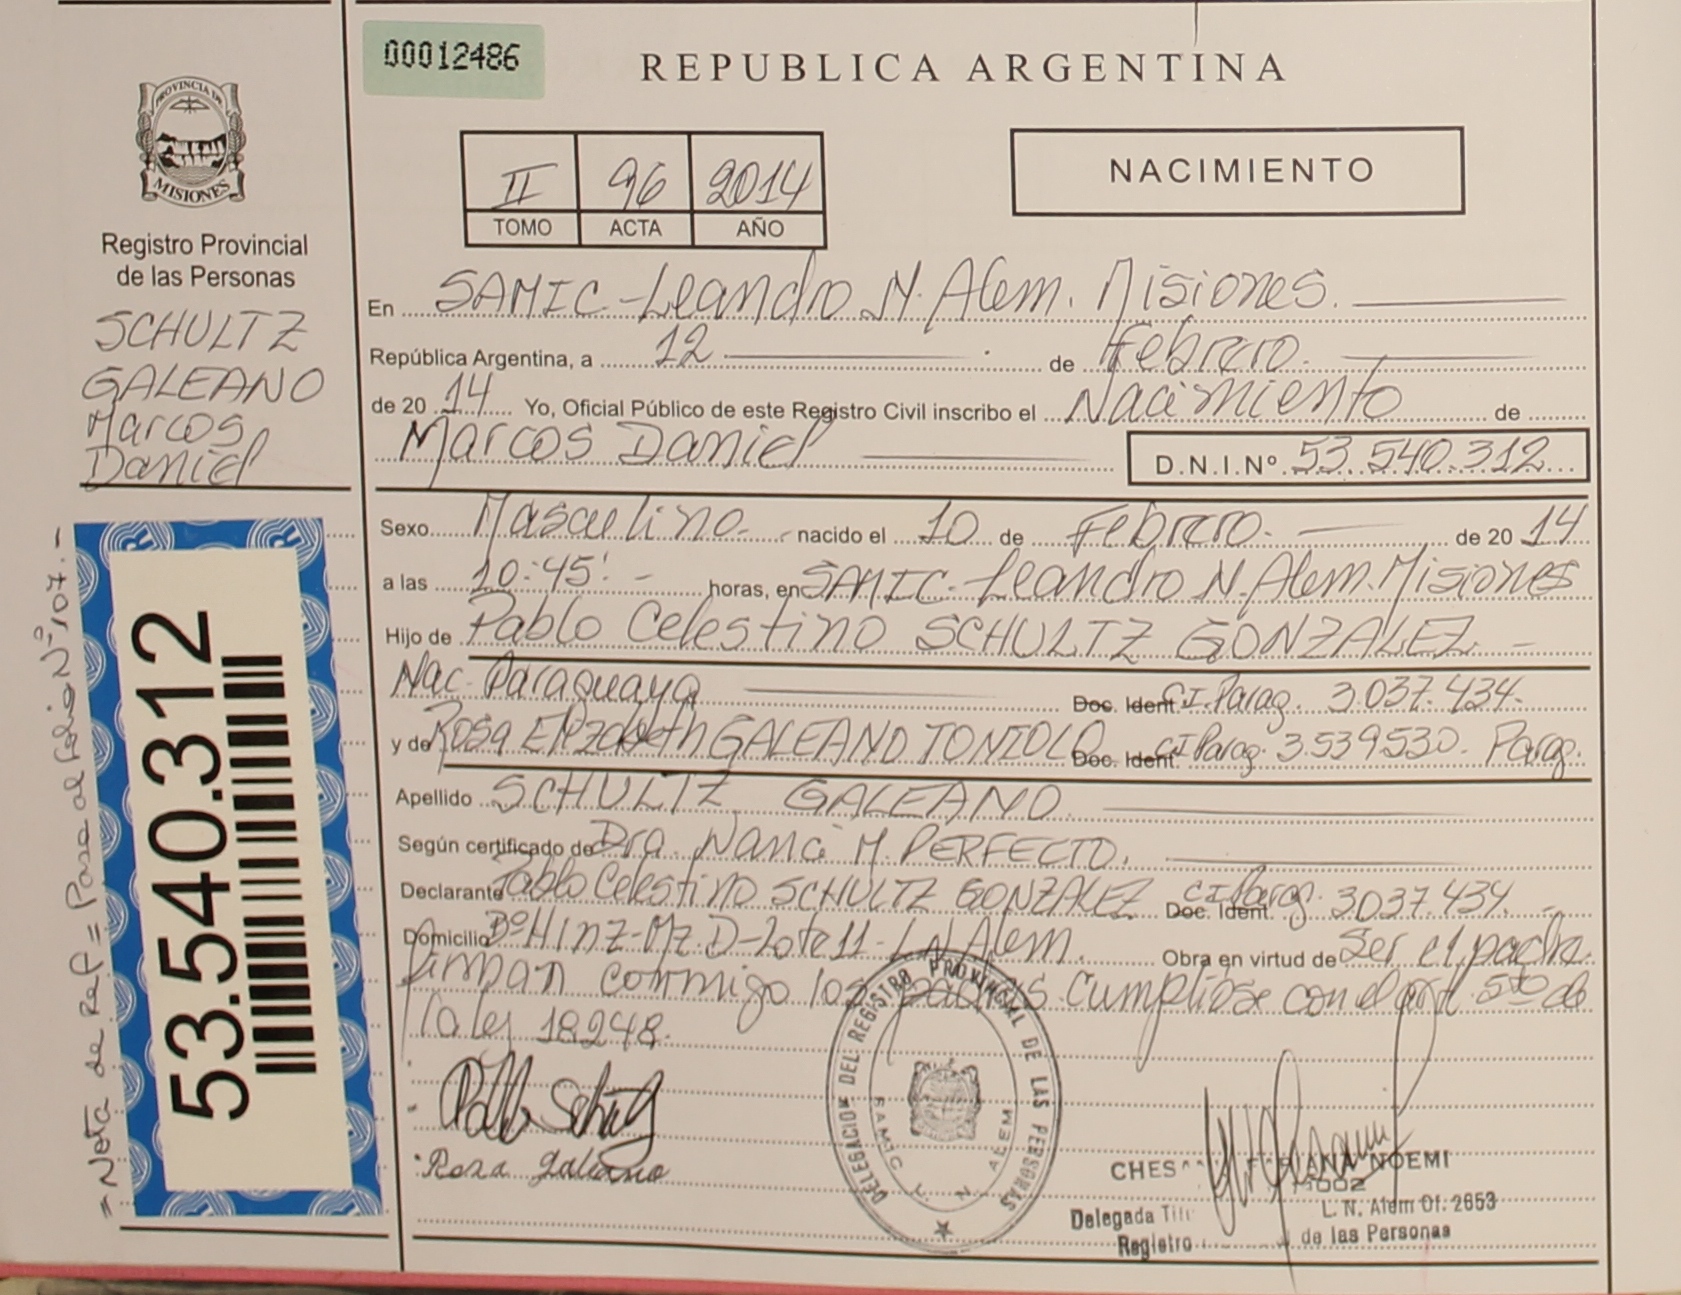 00012486
REPUBLICA ARGENTINA
PROVINCIA DE
MISIONES
Registro Provincial
de las Personas
SCHULTZ
GALEANO
Marcos
Daniel
II 96 2014
TOMO ACTA AÑO
NACIMIENTO
En SAMIC-Leandro N. Alem. Misiones.
República Argentina, a 12 de Febrero.
de 20 14 Yo, Oficial Público de este Registro Civil inscribo el Nacimiento de
Marcos Daniel D.N.I.Nº 53.540.312
Sexo Masculino. nacido el 10 de Febrero. de 20 14
a las 10:45'. horas, en SAMIC-Leandro N. Alem. Misiones
Hijo de Pablo Celestino SCHULTZ GONZALEZ
Nac. Paraguaya Doc. Ident C.I. Parag. 3.037.434.
y de Rosa Elizabeth GALEANO TONIOLO Doc. Ident C.I. Parag. 3.539530. Parag.
Apellido SCHULTZ GALEANO
Según certificado de Dra. Nanci M. PERFECTO.
Declarante Pablo Celestino SCHULTZ GONZALEZ Doc. Ident. C.I. Parag. 3037.434.
Domicilio Bº Hinz-Mz. D-Lote 11-L.N. Alem. Obra en virtud de Ser el padre
Firman conmigo los padres. Cumpliose con el art. 5to de
la ley 18248.
Pablo Schultz
Rosa Galeano
DELEGACION DEL REGISTRO PROVINCIAL DE LAS PERSONAS
SAMIC L. N. ALEM
CHES NOEMI
Delegada L. N. Alem Of. 2653
Registro de las Personas
53.540.312
= Nota de Ref = Pasa al folio Nº 107.-